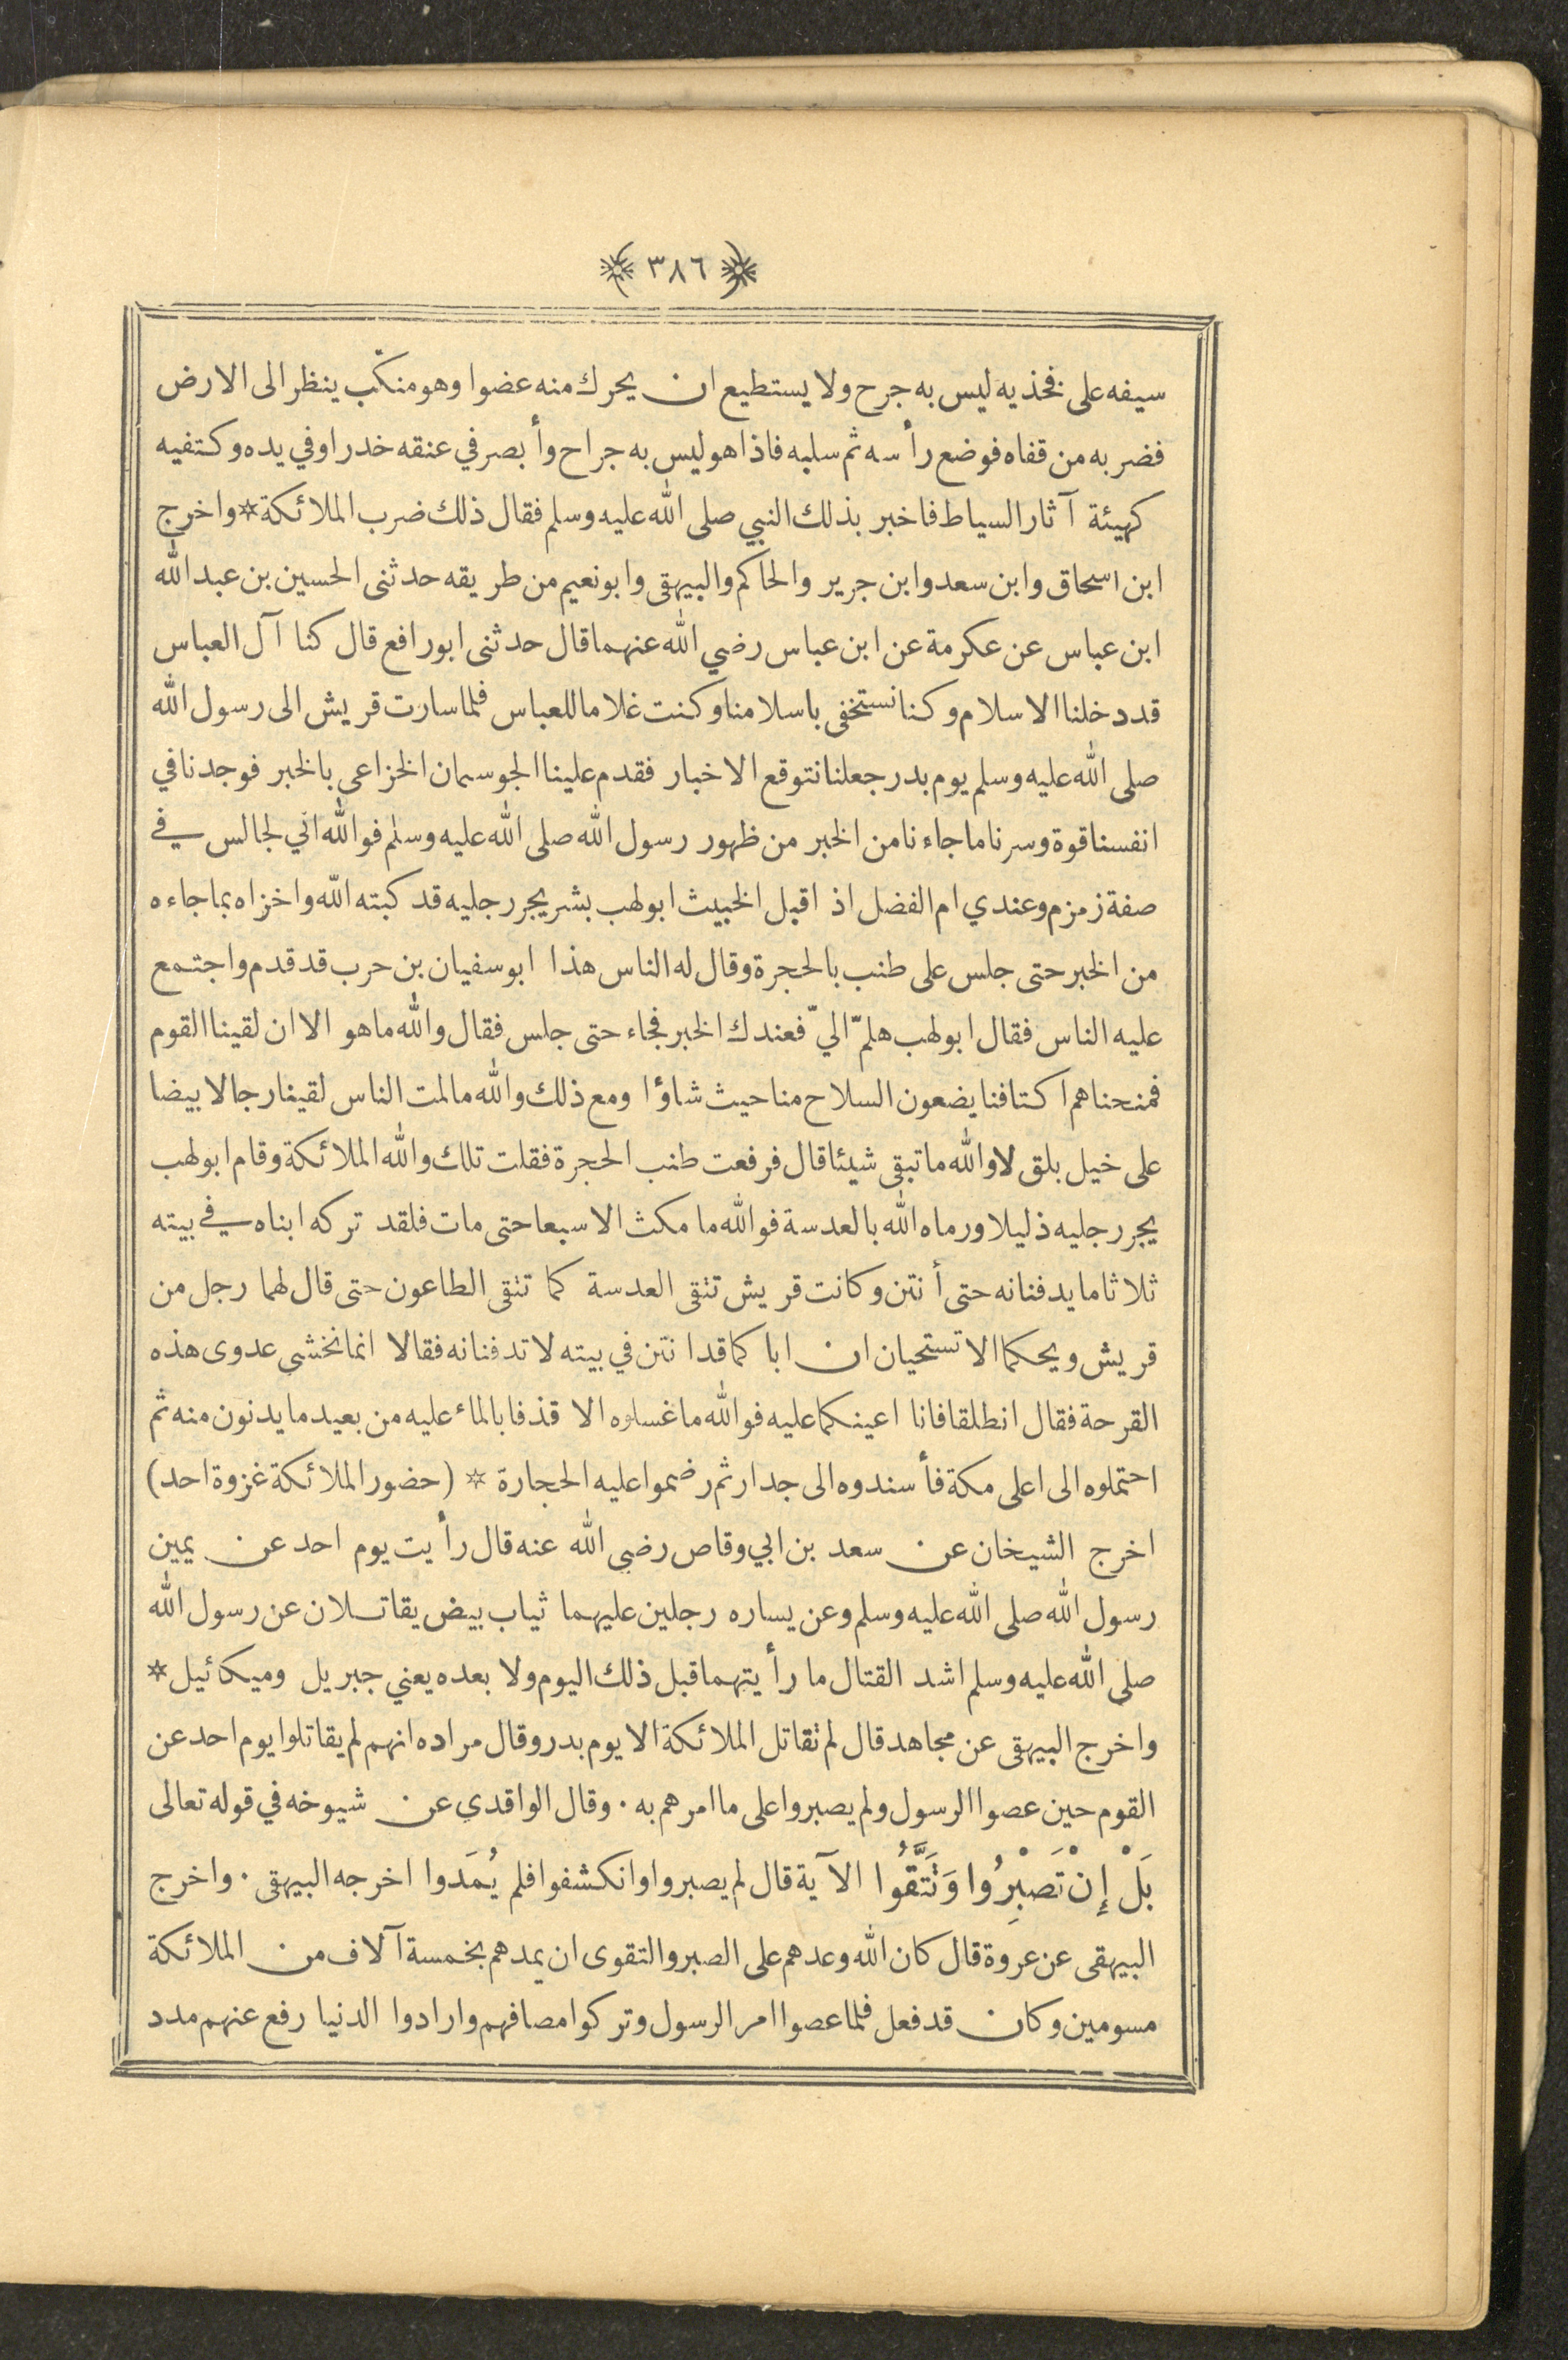 ﴿ ٣٨٦ ﴾
سيفه على فخذيه ليس به جرح ولا يستطيع ان يحرك منه عضوا وهو منكّب ينظر الى الارض
فضربه من قفاه فوضع رأسه ثم سلبه فاذا هو ليس به جراح وأبصر في عنقه خدرا وفي يده وكتفيه
كهيئة آثار السياط فاخبر بذلك النبي صلى الله عليه وسلم فقال ذلك ضرب الملائكة * واخرج
ابن اسحاق وابن سعد وابن جرير والحاكم والبيهقى وابو نعيم من طريقه حدثنى الحسين بن عبد الله
ابن عباس عن عكرمة عن ابن عباس رضي الله عنهما قال حدثنى ابو رافع قال كنا آل العباس
قد دخلنا الاسلام وكنا نستخفى باسلامنا وكنت غلاما للعباس فلما سارت قريش الى رسول الله
صلى الله عليه وسلم يوم بدر جعلنا نتوقع الاخبار فقدم علينا الجوسمان الخزاعى بالخبر فوجدنا في
انفسنا قوة وسرنا ما جاءنا من الخبر من ظهور رسول الله صلى الله عليه وسلم فوالله اني لجالس في
صفة زمزم وعندي ام الفضل اذ اقبل الخبيث ابو لهب بشر يجر رجليه قد كبته الله واخزاه بما جاءه
من الخبر حتى جلس على طنب بالحجرة وقال له الناس هذا ابو سفيان بن حرب قد قدم واجتمع
عليه الناس فقال ابو لهب هلمّ اليّ فعندك الخبر فجاء حتى جلس فقال والله ما هو الا ان لقينا القوم
فمنحناهم اكتافنا يضعون السلاح منا حيث شاؤا ومع ذلك والله ما لمت الناس لقينا رجالا بيضا
على خيل بلق لا والله ما تبقى شيئا قال فرفعت طنب الحجرة فقلت تلك والله الملائكة وقام ابو لهب
يجر رجليه ذليلا ورماه الله بالعدسة فوالله ما مكث الا سبعا حتى مات فلقد تركه ابناه في بيته
ثلاثا ما يدفنانه حتى أنتن وكانت قريش تتقى العدسة كما تتقى الطاعون حتى قال لهما رجل من
قريش ويحكما الا تستحيان ان اباكما قد انتن في بيته لا تدفنانه فقالا انما نخشى عدوى هذه
القرحة فقال انطلقا فانا اعينكما عليه فوالله ما غسلوه الا قذفا بالماء عليه من بعيد ما يدنون منه ثم
احتملوه الى اعلى مكة فأسندوه الى جدار ثم رضموا عليه الحجارة * (حضور الملائكة غزوة احد)
اخرج الشيخان عن سعد بن ابي وقاص رضي الله عنه قال رأيت يوم احد عن يمين
رسول الله صلى الله عليه وسلم وعن يساره رجلين عليهما ثياب بيض يقاتلان عن رسول الله
صلى الله عليه وسلم اشد القتال ما رأيتهما قبل ذلك اليوم ولا بعده يعني جبريل وميكائيل *
واخرج البيهقى عن مجاهد قال لم تقاتل الملائكة الا يوم بدر وقال مراده انهم لم يقاتلوا يوم احد عن
القوم حين عصوا الرسول ولم يصبروا على ما امرهم به . وقال الواقدي عن شيوخه في قوله تعالى
بَلْ إِنْ تَصْبِرُوا وَتَتَّقُوا الآية قال لم يصبروا وانكشفوا فلم يُمَدوا اخرجه البيهقى . واخرج
البيهقى عن عروة قال كان الله وعدهم على الصبر والتقوى ان يمدهم بخمسة آلاف من الملائكة
مسومين وكان قد فعل فلما عصوا امر الرسول وتركوا مصافهم وارادوا الدنيا رفع عنهم مدد